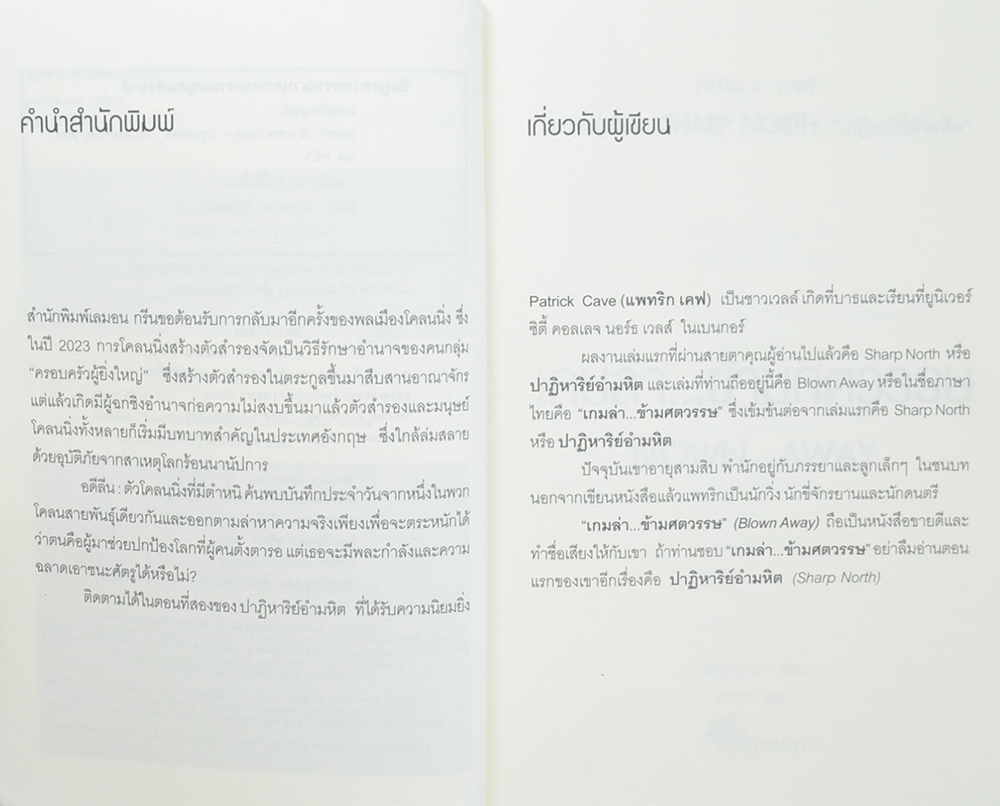 คำนำสำนักพิมพ์
สำนักพิมพ์เลมอน กรีนขอต้อนรับการกลับมาอีกครั้งของพลเมืองโคลนนิ่ง ซึ่ง
ในปี 2023 การโคลนนิ่งสร้างตัวสำรองจัดเป็นวิธีรักษาอำนาจของคนกลุ่ม
“ครอบครัวผู้ยิ่งใหญ่” ซึ่งสร้างตัวสำรองในตระกูลขึ้นมาสืบสานอาณาจักร
แต่แล้วเกิดมีผู้ฉกชิงอำนาจก่อความไม่สงบขึ้นมาแล้วตัวสำรองและมนุษย์
โคลนนิ่งทั้งหลายก็เริ่มมีบทบาทสำคัญในประเทศอังกฤษ ซึ่งใกล้ล่มสลาย
ด้วยอุบัติภัยจากสาเหตุโลกร้อนนานัปการ
อดีลีน : ตัวโคลนนิ่งที่มีตำหนิ ค้นพบบันทึกประจำวันจากหนึ่งในพวก
โคลนสายพันธุ์เดียวกันและออกตามล่าหาความจริงเพียงเพื่อจะตระหนักได้
ว่าตนคือผู้มาช่วยปกป้องโลกที่ผู้คนตั้งตารอ แต่เธอจะมีพละกำลังและความ
ฉลาดเอาชนะศัตรูได้หรือไม่?
ติดตามได้ในตอนที่สองของ ปาฏิหาริย์อำมหิต ที่ได้รับความนิยมยิ่ง
เกี่ยวกับผู้เขียน
Patrick Cave (แพทริก เคฟ) เป็นชาวเวลล์ เกิดที่บาธและเรียนที่ยูนิเวอร์
ซิตี้ คอลเลจ นอร์ธ เวลส์ ในเบนกอร์
ผลงานเล่มแรกที่ผ่านสายตาคุณผู้อ่านไปแล้วคือ Sharp North หรือ
ปาฏิหาริย์อำมหิต และเล่มที่ท่านถืออยู่นี้คือ Blown Away หรือในชื่อภาษา
ไทยคือ “เกมล่า...ข้ามศตวรรษ” ซึ่งเข้มข้นต่อจากเล่มแรกคือ Sharp North
หรือ ปาฏิหาริย์อำมหิต
ปัจจุบันเขาอายุสามสิบ พำนักอยู่กับภรรยาและลูกเล็กๆ ในชนบท
นอกจากเขียนหนังสือแล้วแพทริกเป็นนักวิ่ง นักขี่จักรยานและนักดนตรี
“เกมล่า...ข้ามศตวรรษ” (Blown Away) ถือเป็นหนังสือขายดีและ
ทำชื่อเสียงให้กับเขา ถ้าท่านชอบ “เกมล่า...ข้ามศตวรรษ” อย่าลืมอ่านตอน
แรกของเขาอีกเรื่องคือ ปาฏิหาริย์อำมหิต (Sharp North)